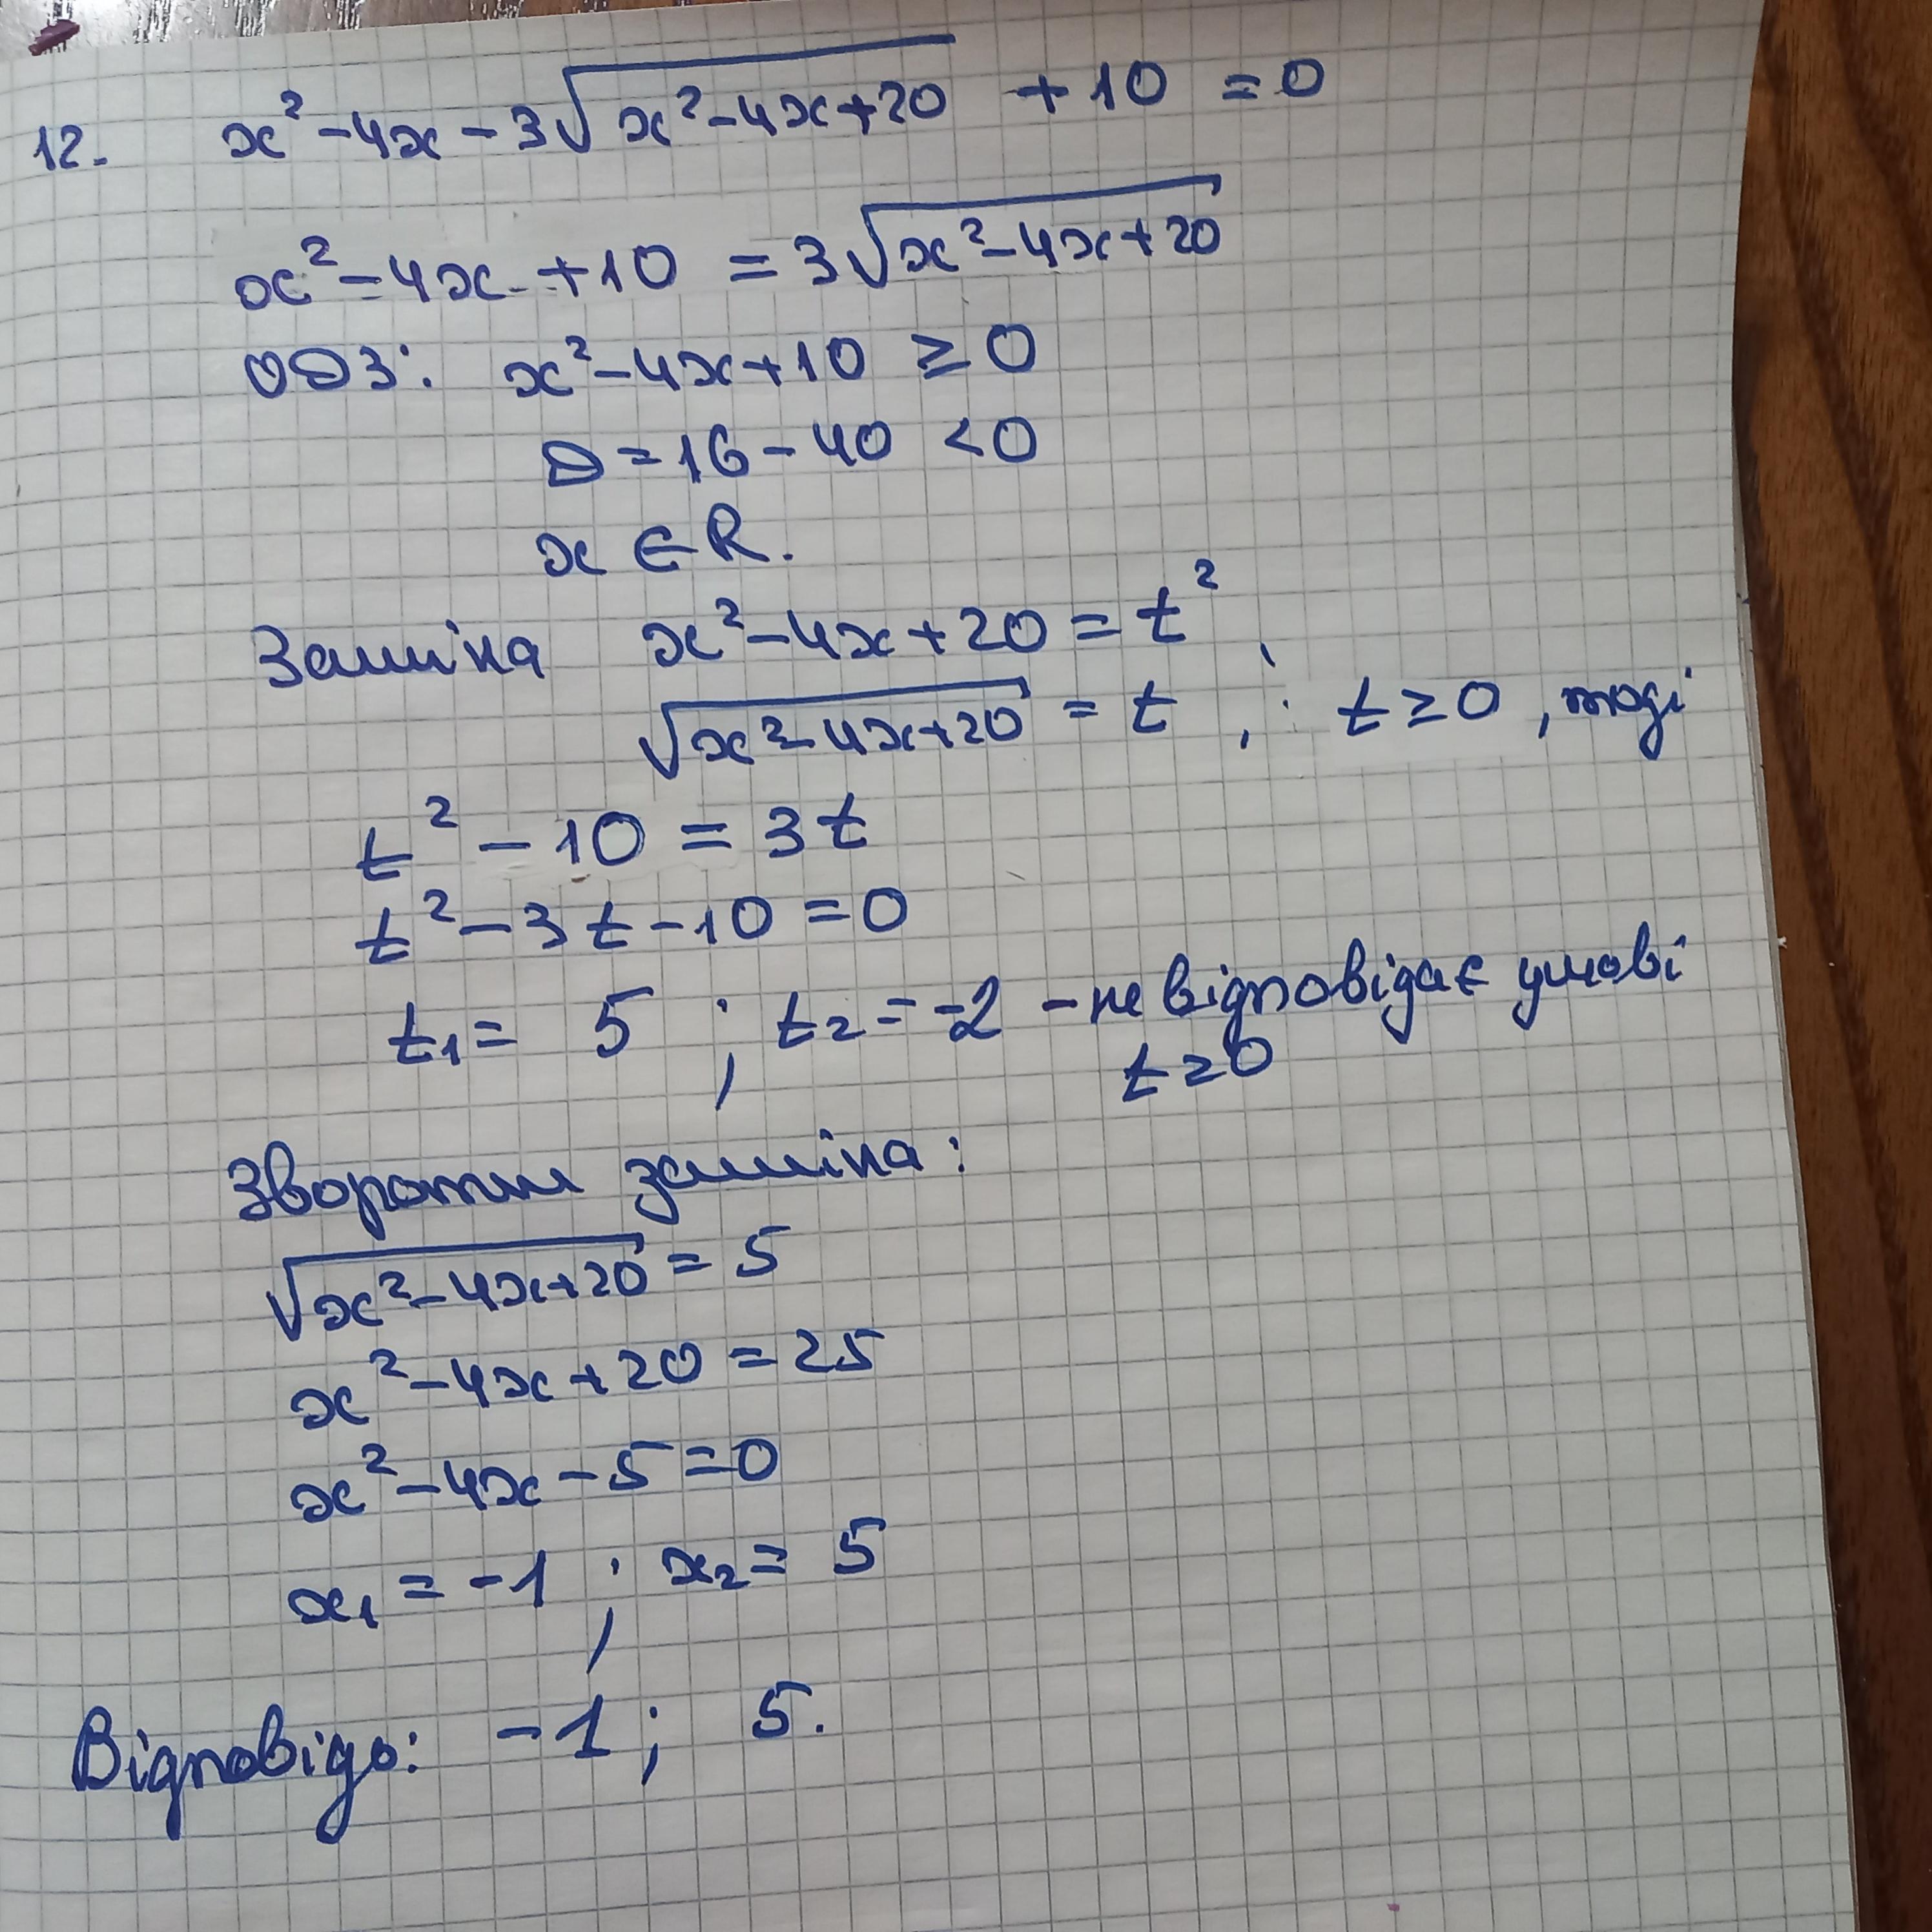 12. x² - 4x - 3√(x² - 4x + 20) + 10 = 0
x² - 4x + 10 = 3√(x² - 4x + 20)
ОДЗ: x² - 4x + 10 ≥ 0
D = 16 - 40 < 0
x ∈ R.
Заміна x² - 4x + 20 = t² ,
√(x² - 4x + 20) = t ; t ≥ 0, тоді
t² - 10 = 3t
t² - 3t - 10 = 0
t₁ = 5 ; t₂ = -2 - не відповідає умові
t ≥ 0
Зворотня заміна:
√(x² - 4x + 20) = 5
x² - 4x + 20 = 25
x² - 4x - 5 = 0
x₁ = -1 ; x₂ = 5
Відповідь: -1 ; 5.